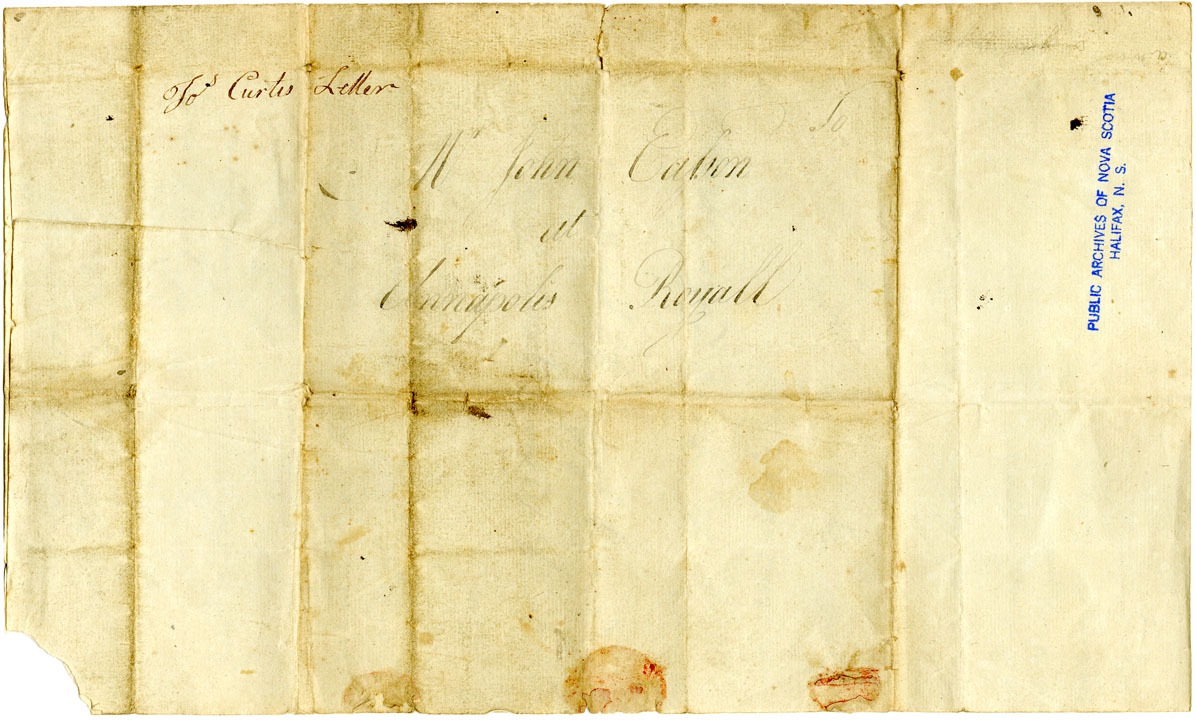 Jos Curtis Letter
To
Mr John Eason
at
Annapolis Royall
PUBLIC ARCHIVES OF NOVA SCOTIA
HALIFAX, N. S.